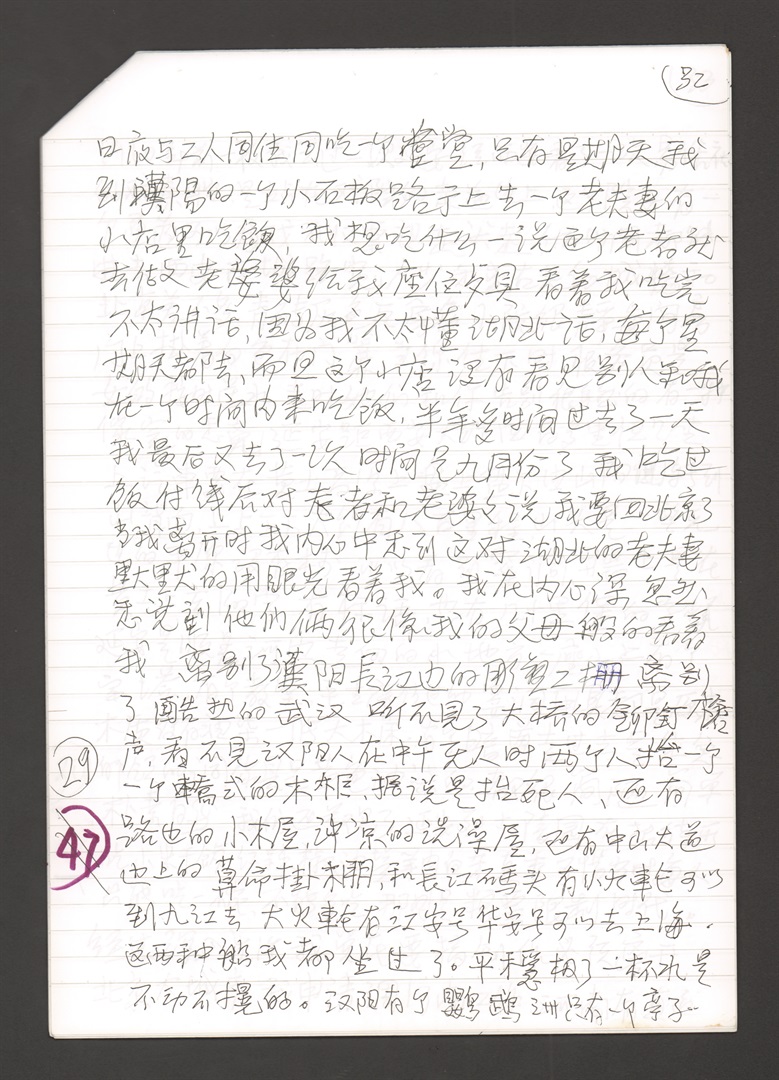 32
日夜与工人同住同吃一个食堂,只有星期天我
到漢陽的一个小石板路子上去一个老夫妻的
小店里吃飯,我想吃什么一说两个老者就
去做 老婆婆给我座位 具 看着我吃完
不太讲话,因为我不太懂湖北话,每个星
期天都去、而且这个小店没有看见别人和我
在一个时间内来吃飯,半年多时间过去了一天
我最后又去了一次 时间是九月份了 我吃过
飯付钱后对老者和老婆々说我要回北京了
当我离开时我内心中感到这对湖北的老夫妻
默默的用眼光看着我。我在内心深 忽然
感觉到他们俩很像我的父母般的看着
我 离别了漢阳長江边的 工棚 离别
了酷热的武汉 听不見了大桥的鉚釘枪
声,看不見汉阳人在中午无人时两个人抬一个
一个轎式的木柜、据说是抬死人、还有
路边的小木屋,冲凉的洗澡屋,还有中山大道
边上的算命掛 棚,和長江码头有小火輪可以
到九江去 大火輪有江安号华安号可以去上海.
这两种船我都坐过了。平稳极了一杯水是
不动不摇的。汉阳有个鸚鵡洲只有一个亭子
29
47